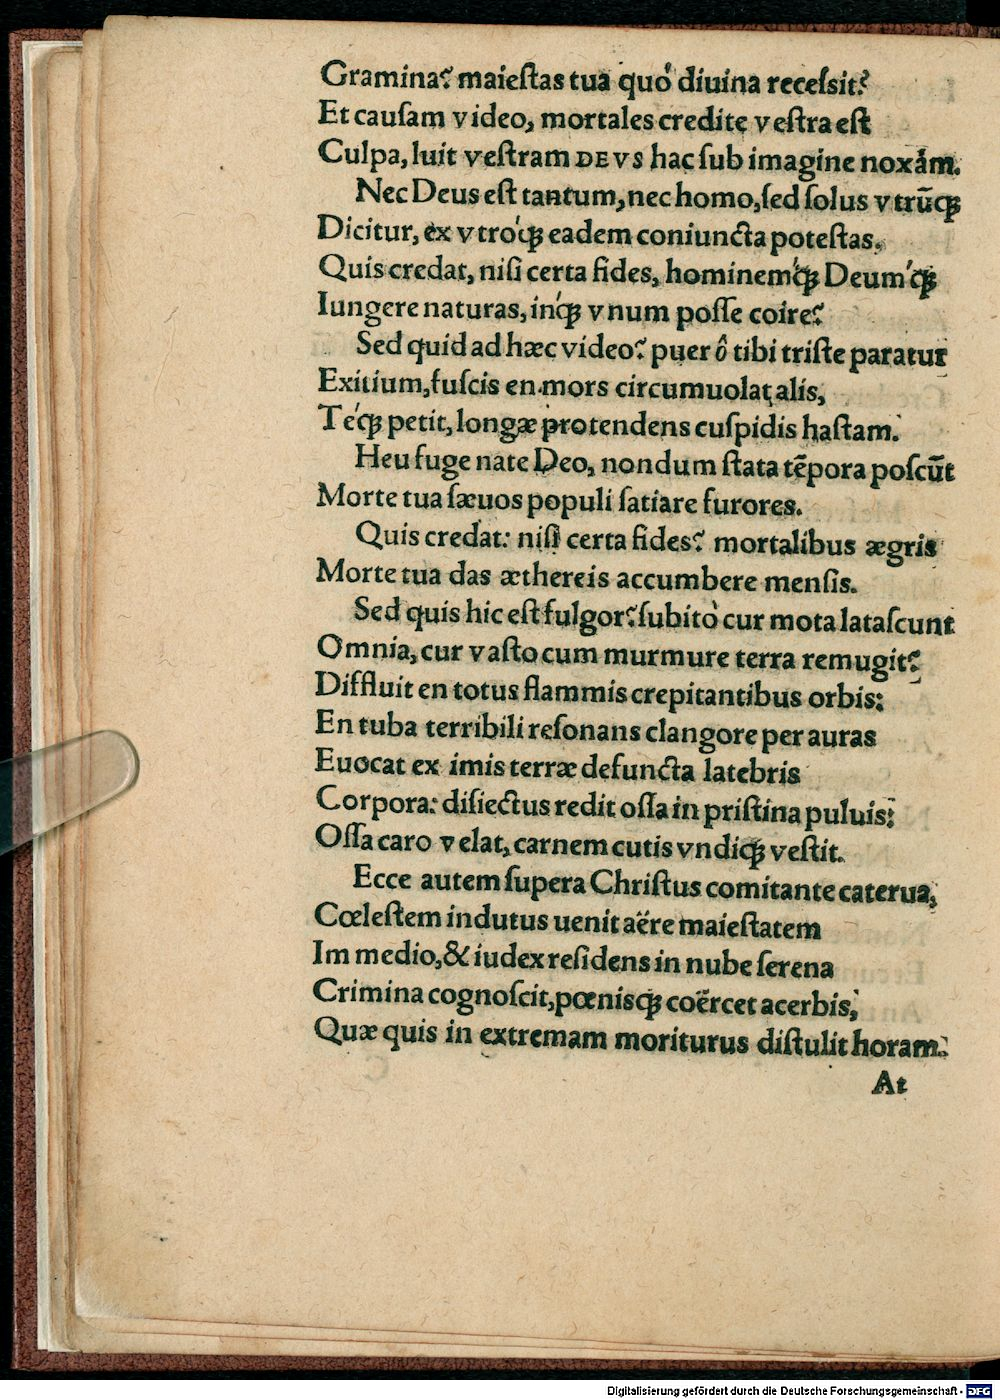 Graminaꝰ maieſtas tua quó diuina receſsit?
Et cauſam video, mortales credite veſtra eſt
Culpa, luit veſtram DEVS hac ſub imagine noxám.
Nec Deus eſt tantum, nec homo, ſed ſolus vtrũqꝫ
Dicitur, ex vtróqꝫ eadem coniuncta poteſtas.
Quis credat, niſi certa fides, hominem'qꝫ Deum'qꝫ
Iungere naturas, in'qꝫ vnum poſſe coire?
Sed quid ad hæc video? puer ô tibi triſte paratur
Exitium, fuſcis en mors circumuolat alis,
Té'qꝫ petit, longæ protendens cuſpidis haſtam.
Heu fuge nate Deo, nondum ſtata tẽpora poſcũt
Morte tua ſæuos populi ſatiare furores.
Quis credat: niſi certa fides? mortalibus ægris
Morte tua das æthereis accumbere menſis.
Sed quis hic eſt fulgor? ſubitò cur mota lataſcunt
Omnia, cur vaſto cum murmure terra remugit?
Diffluit en totus flammis crepitantibus orbis:
En tuba terribili reſonans clangore per auras
Euocat ex imis terræ defuncta latebris
Corpora: diſiectus redit oſſa in priſtina puluis:
Oſſa caro velat, carnem cutis vndiqꝫ veſtit.
Ecce autem ſupera Chriſtus comitante caterua,
Cœleſtem indutus uenit aëre maieſtatem
Im medio, & iudex reſidens in nube ſerena
Crimina cognoſcit, pœnisqꝫ coërcet acerbis,
Quæ quis in extremam moriturus diſtulit horam.
At
Digitalisierung gefördert durch die Deutsche Forschungsgemeinschaft - DFG